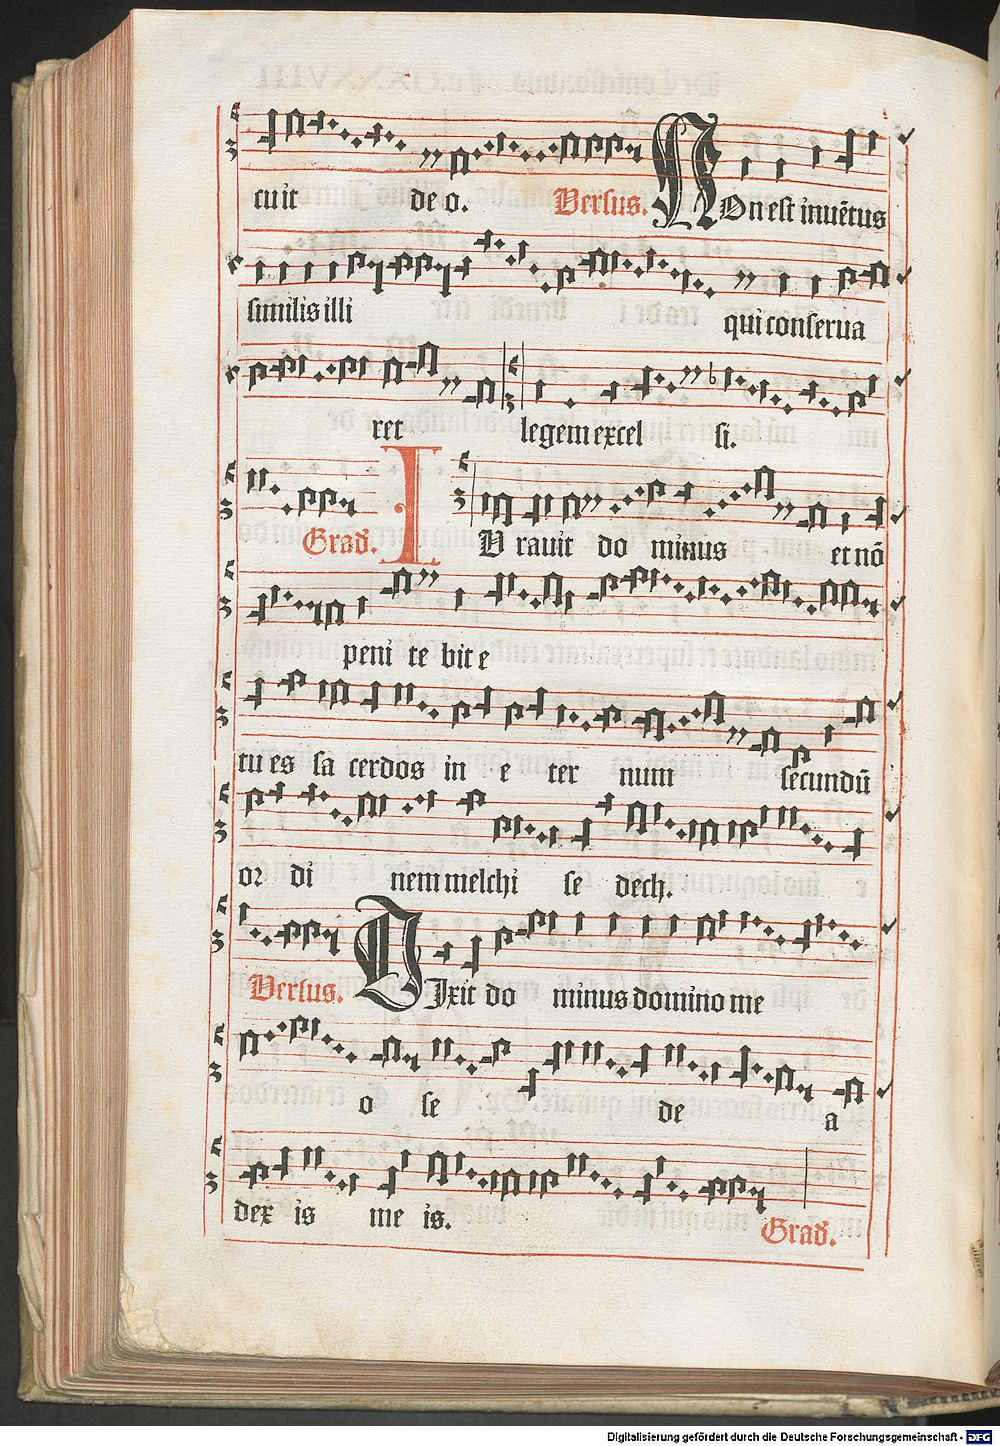 cuit de o. Versus. NOn est inuētus
similis illi qui conserua
ret legem excel si.
Grad. IU rauit do minus et nō
peni te bit e
tu es sa cerdos in e ter num secundū
or di nem melchi se dech.
Versus. DIxit do minus domino me
o se de a
dex is me is.
Grad.
Digitalisierung gefördert durch die Deutsche Forschungsgemeinschaft - DFG